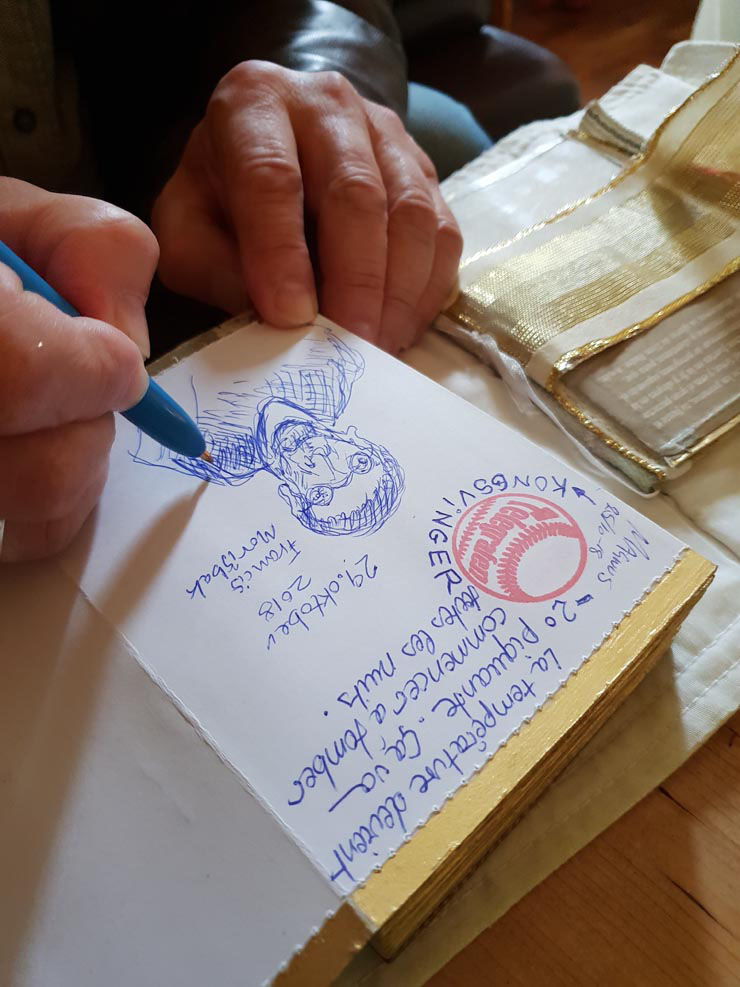 KONGSVINGER
Telegrafen
-2°
La température devient
piquante. Ça va
commencer a tomber
toutes les nuits.
29. oktober
2018
Francis